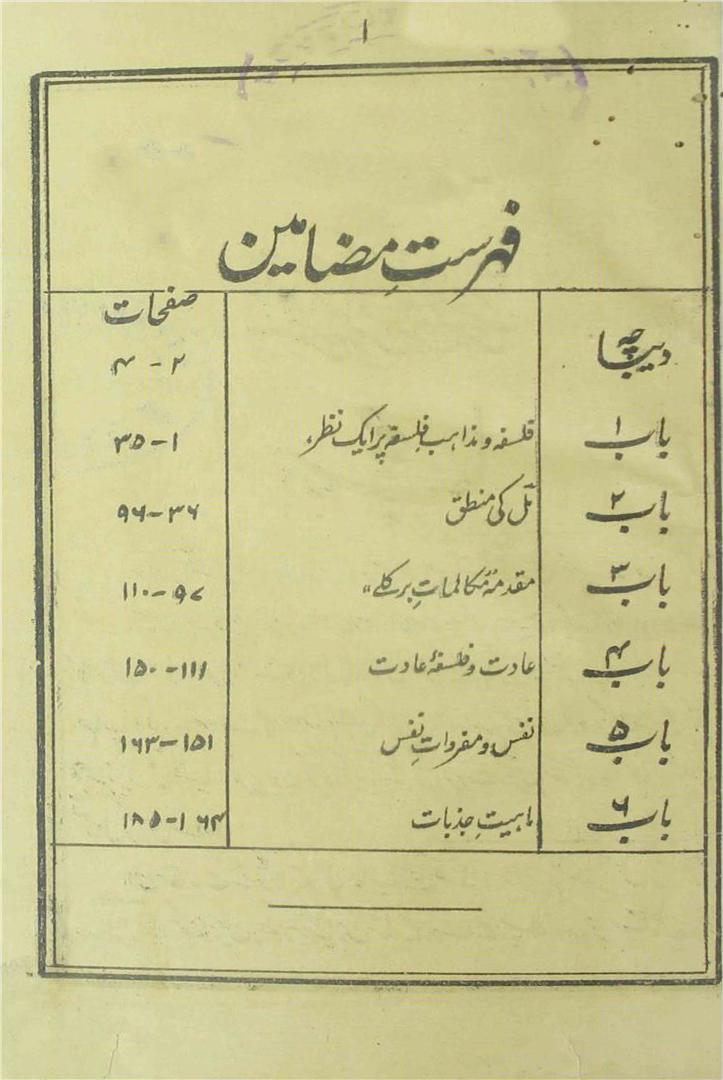 ۱
فہرستِ مضامین
صفحات
دیباچہ ۲ - ۴
باب ۱ فلسفہ و مذاہب فلسفہ پر ایک نظر، ۱-۳۵
باب ۲ مل کی منطق ۳۶-۹۶
باب ۳ مقدمۂ مکالماتِ برکلے" ۹۷-۱۱۰
باب ۴ عادت و فلسفۂ عادت ۱۱۱-۱۵۰
باب ۵ نفس و مفرداتِ نفس ۱۵۱-۱۶۳
باب ۶ ماہیتِ جذبات ۱۶۴-۱۸۵